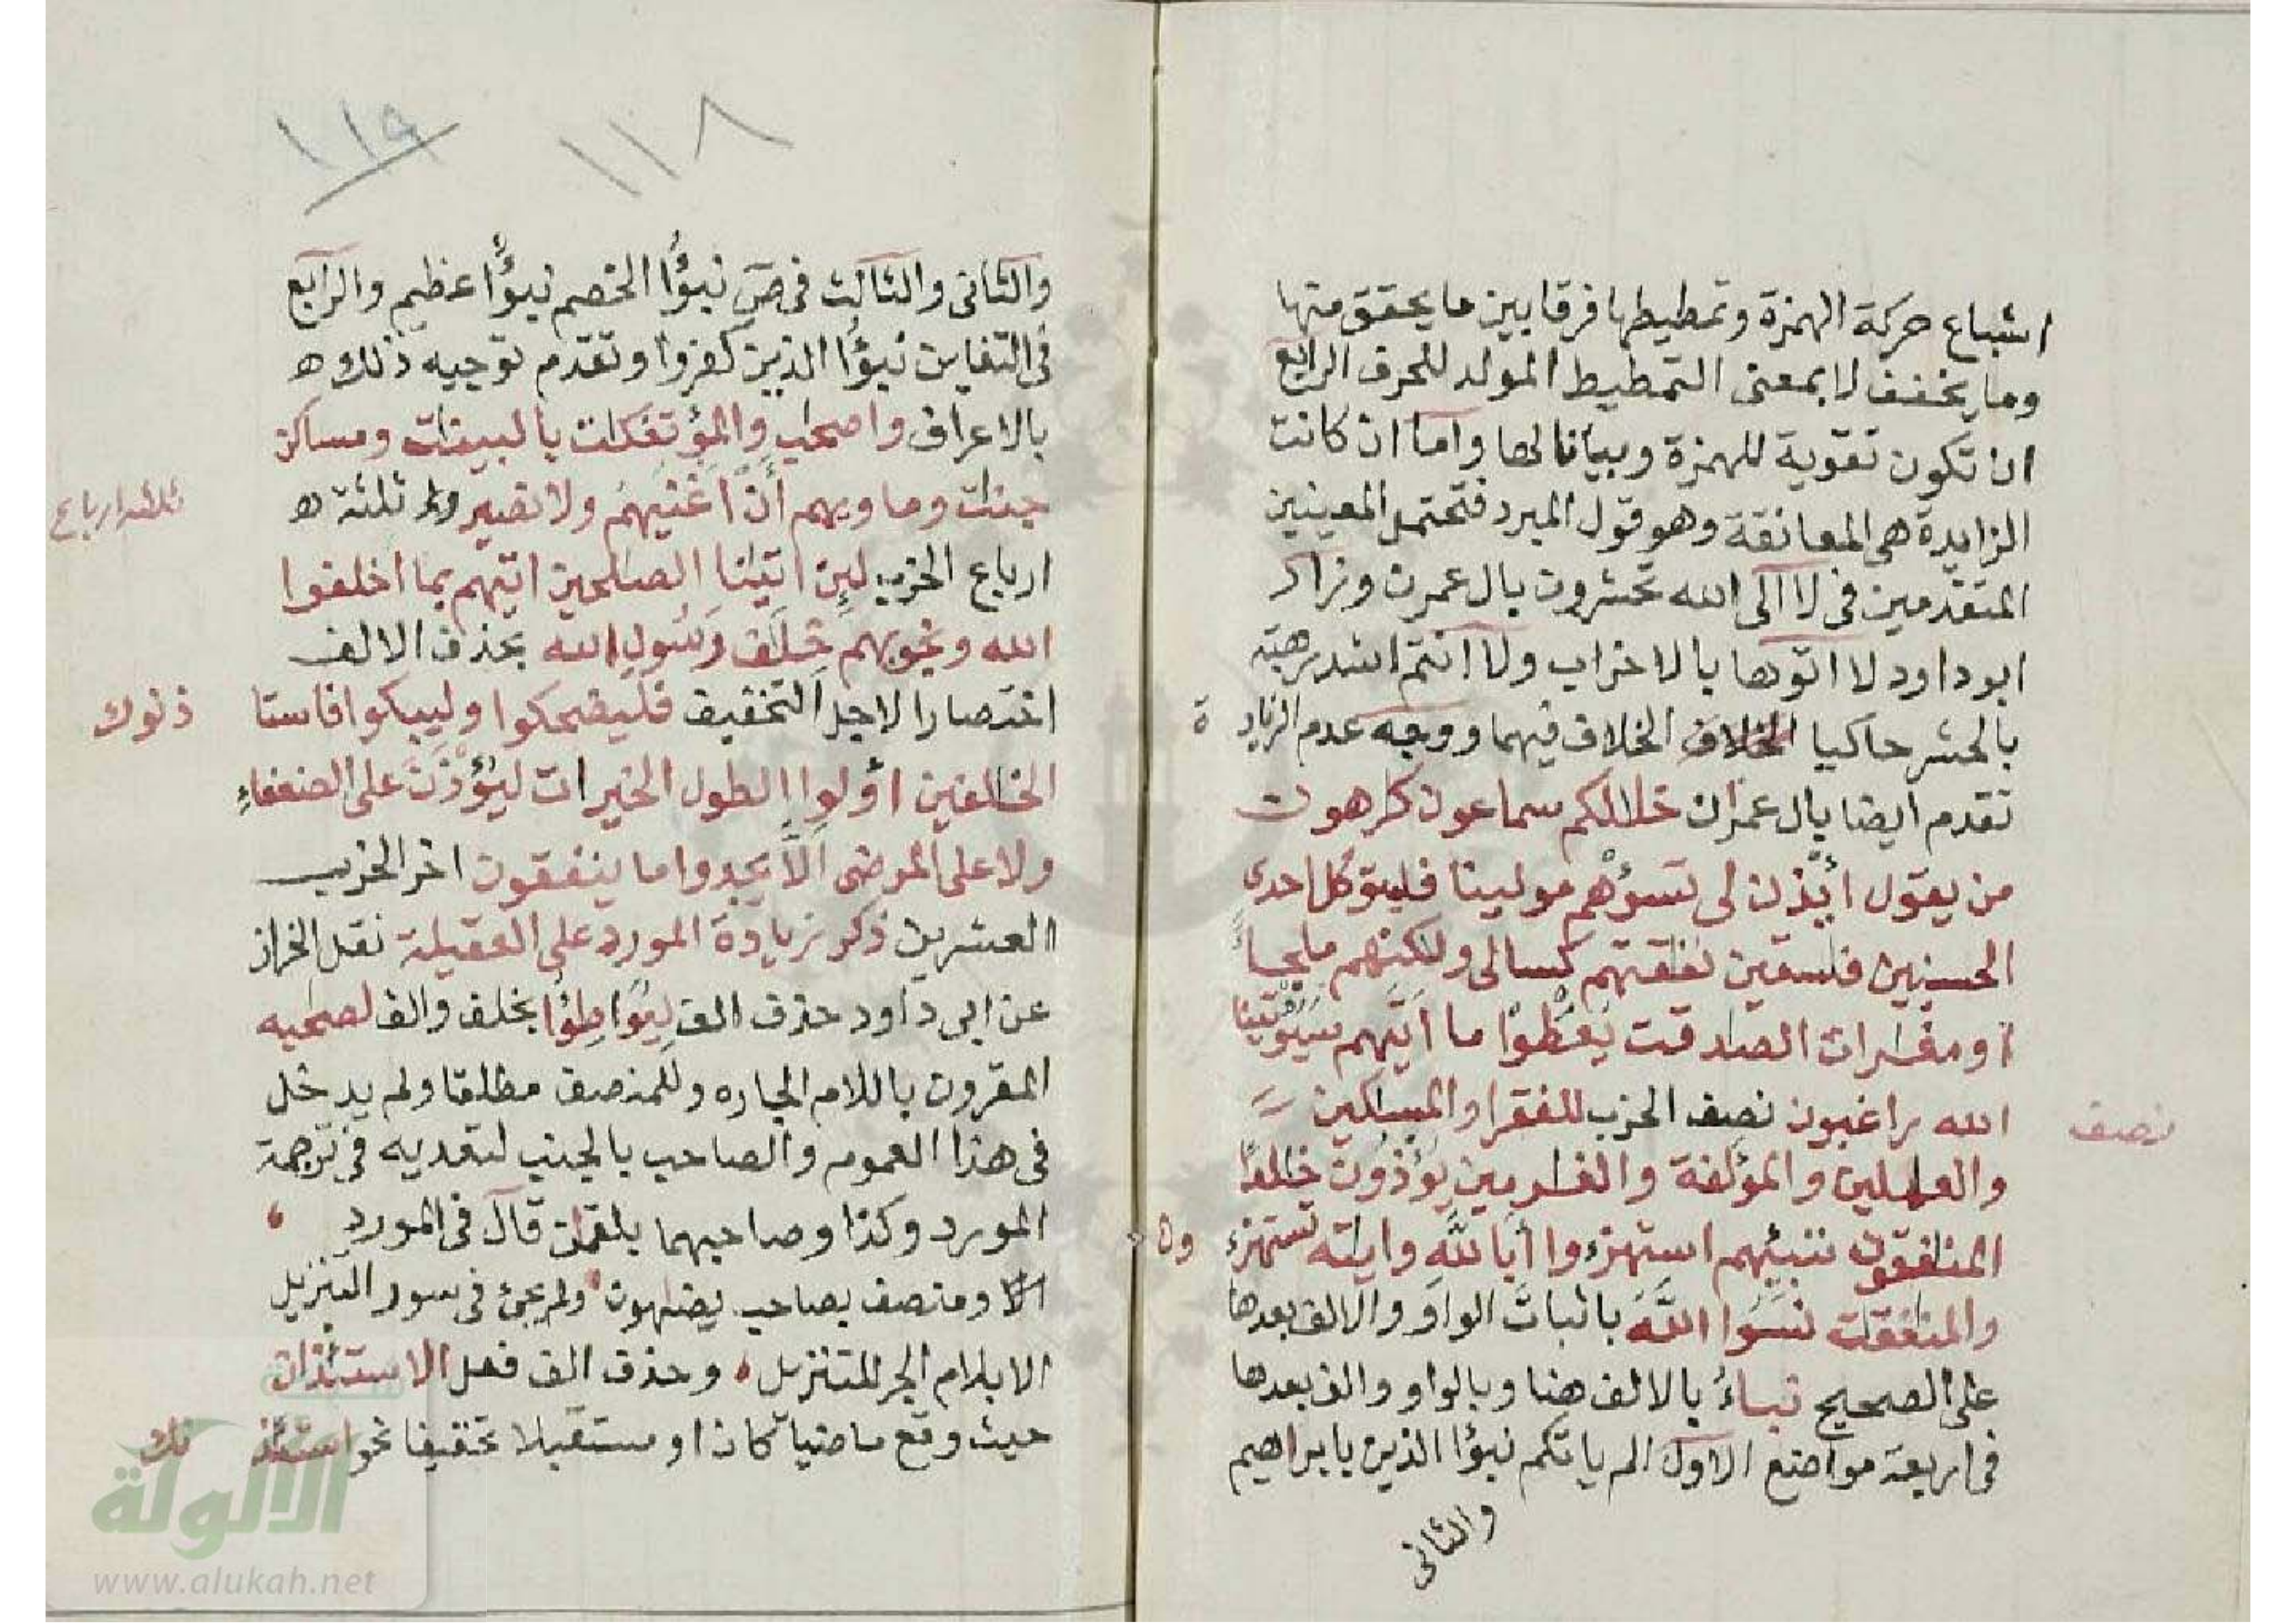 اشباع حركة الهمزة وتمطيطها فرقا بين ما يحقق منها
وما يخفف لا بمعنى التمطيط المولد للحرف الرابع
ان تكون تقوية للهمزة وبيانا لها واما ان كانت
الزايدة هى المعانقة وهو قول المبرد فتحتمل المعنيين
المتقدمين فى لا الى الله تحشرون بال عمرن وزاد
ابو داود لا اتوها بالاحزاب ولا انتم اشد رهبة
بالحشر حاكيا الخلاف الخلاف فيهما ووجه عدم الزياد ة
تقدم ايضا بال عمران خللكم سماعون كرهون
من يقول ائذن لى تسؤهم مولينا فليتوكل احدى
الحسنيين فسقين نفقتهم كسالى ولكنهم ملجـا
او مغرات الصدقت يعطوا ما اتيهم سيؤتينا
الله راغبون نصف الحزب للفقرا والمسكين
نصف
والعملين والمؤلفة والغرمين يؤذون خلدا
المنفقون تنبئهم استهزءوا ابالله وايته تستهزء ون
والمنفقت نسوا الله باثبات الواو والالف بعدها
على الصحيح نباء بالالف هنا وبالواو والف بعدها
فى اربعة مواضع الاول الم ياتكم نبؤا الذين بابراهيم
والثانى
١١٨
١١٩
والثانى والثالث فى ص نبؤا الخصم نبؤا عظيم والرابع
فى التغابن نبؤا الذين كفروا وتقدم توجيه ذلك ه
بالاعراف واصحب والمؤتفكت بالبينت ومسكن
جنت وماويهم ان اغنيهم ولا نصير ثلثة ه
ثلثة ارباع
ارباع الحزب لين اتينا الصلحين اتيهم بما اخلفوا
الله ونجويهم خلف رسول الله بحذف الالف
اختصارا لاجل التخفيف فليضحكوا وليبكوا فاستا ذنوك
الخلفين اولوا الطول الخيرات ليؤذن على الضعفاء
ولا على المرضى الا يجدوا ما ينفقون اخر الحزب
العشرين ذكر زيادة المورد على العقيلة نقل الخراز
عن ابى داود حذف الف ليواطؤا بخلف والف لصحبه
المقرون باللام الجاره وللمنصف مطلقا ولم يدخل
فى هذا العموم والصاحب بالجنب لتقديه فى ترجمة
المورد وكذا وصاحبهما بلقمن قال فى المورد
ومنصف بصاحب يضهون ولم يجئ فى سور التنزيل
الا بلام الجر للتنزيل وحذف الف فعل الاستئذان
حيث وقع ماضيا كان او مستقبلا تخفيفا نحو استئذ نك
الألوكة
www.alukah.net